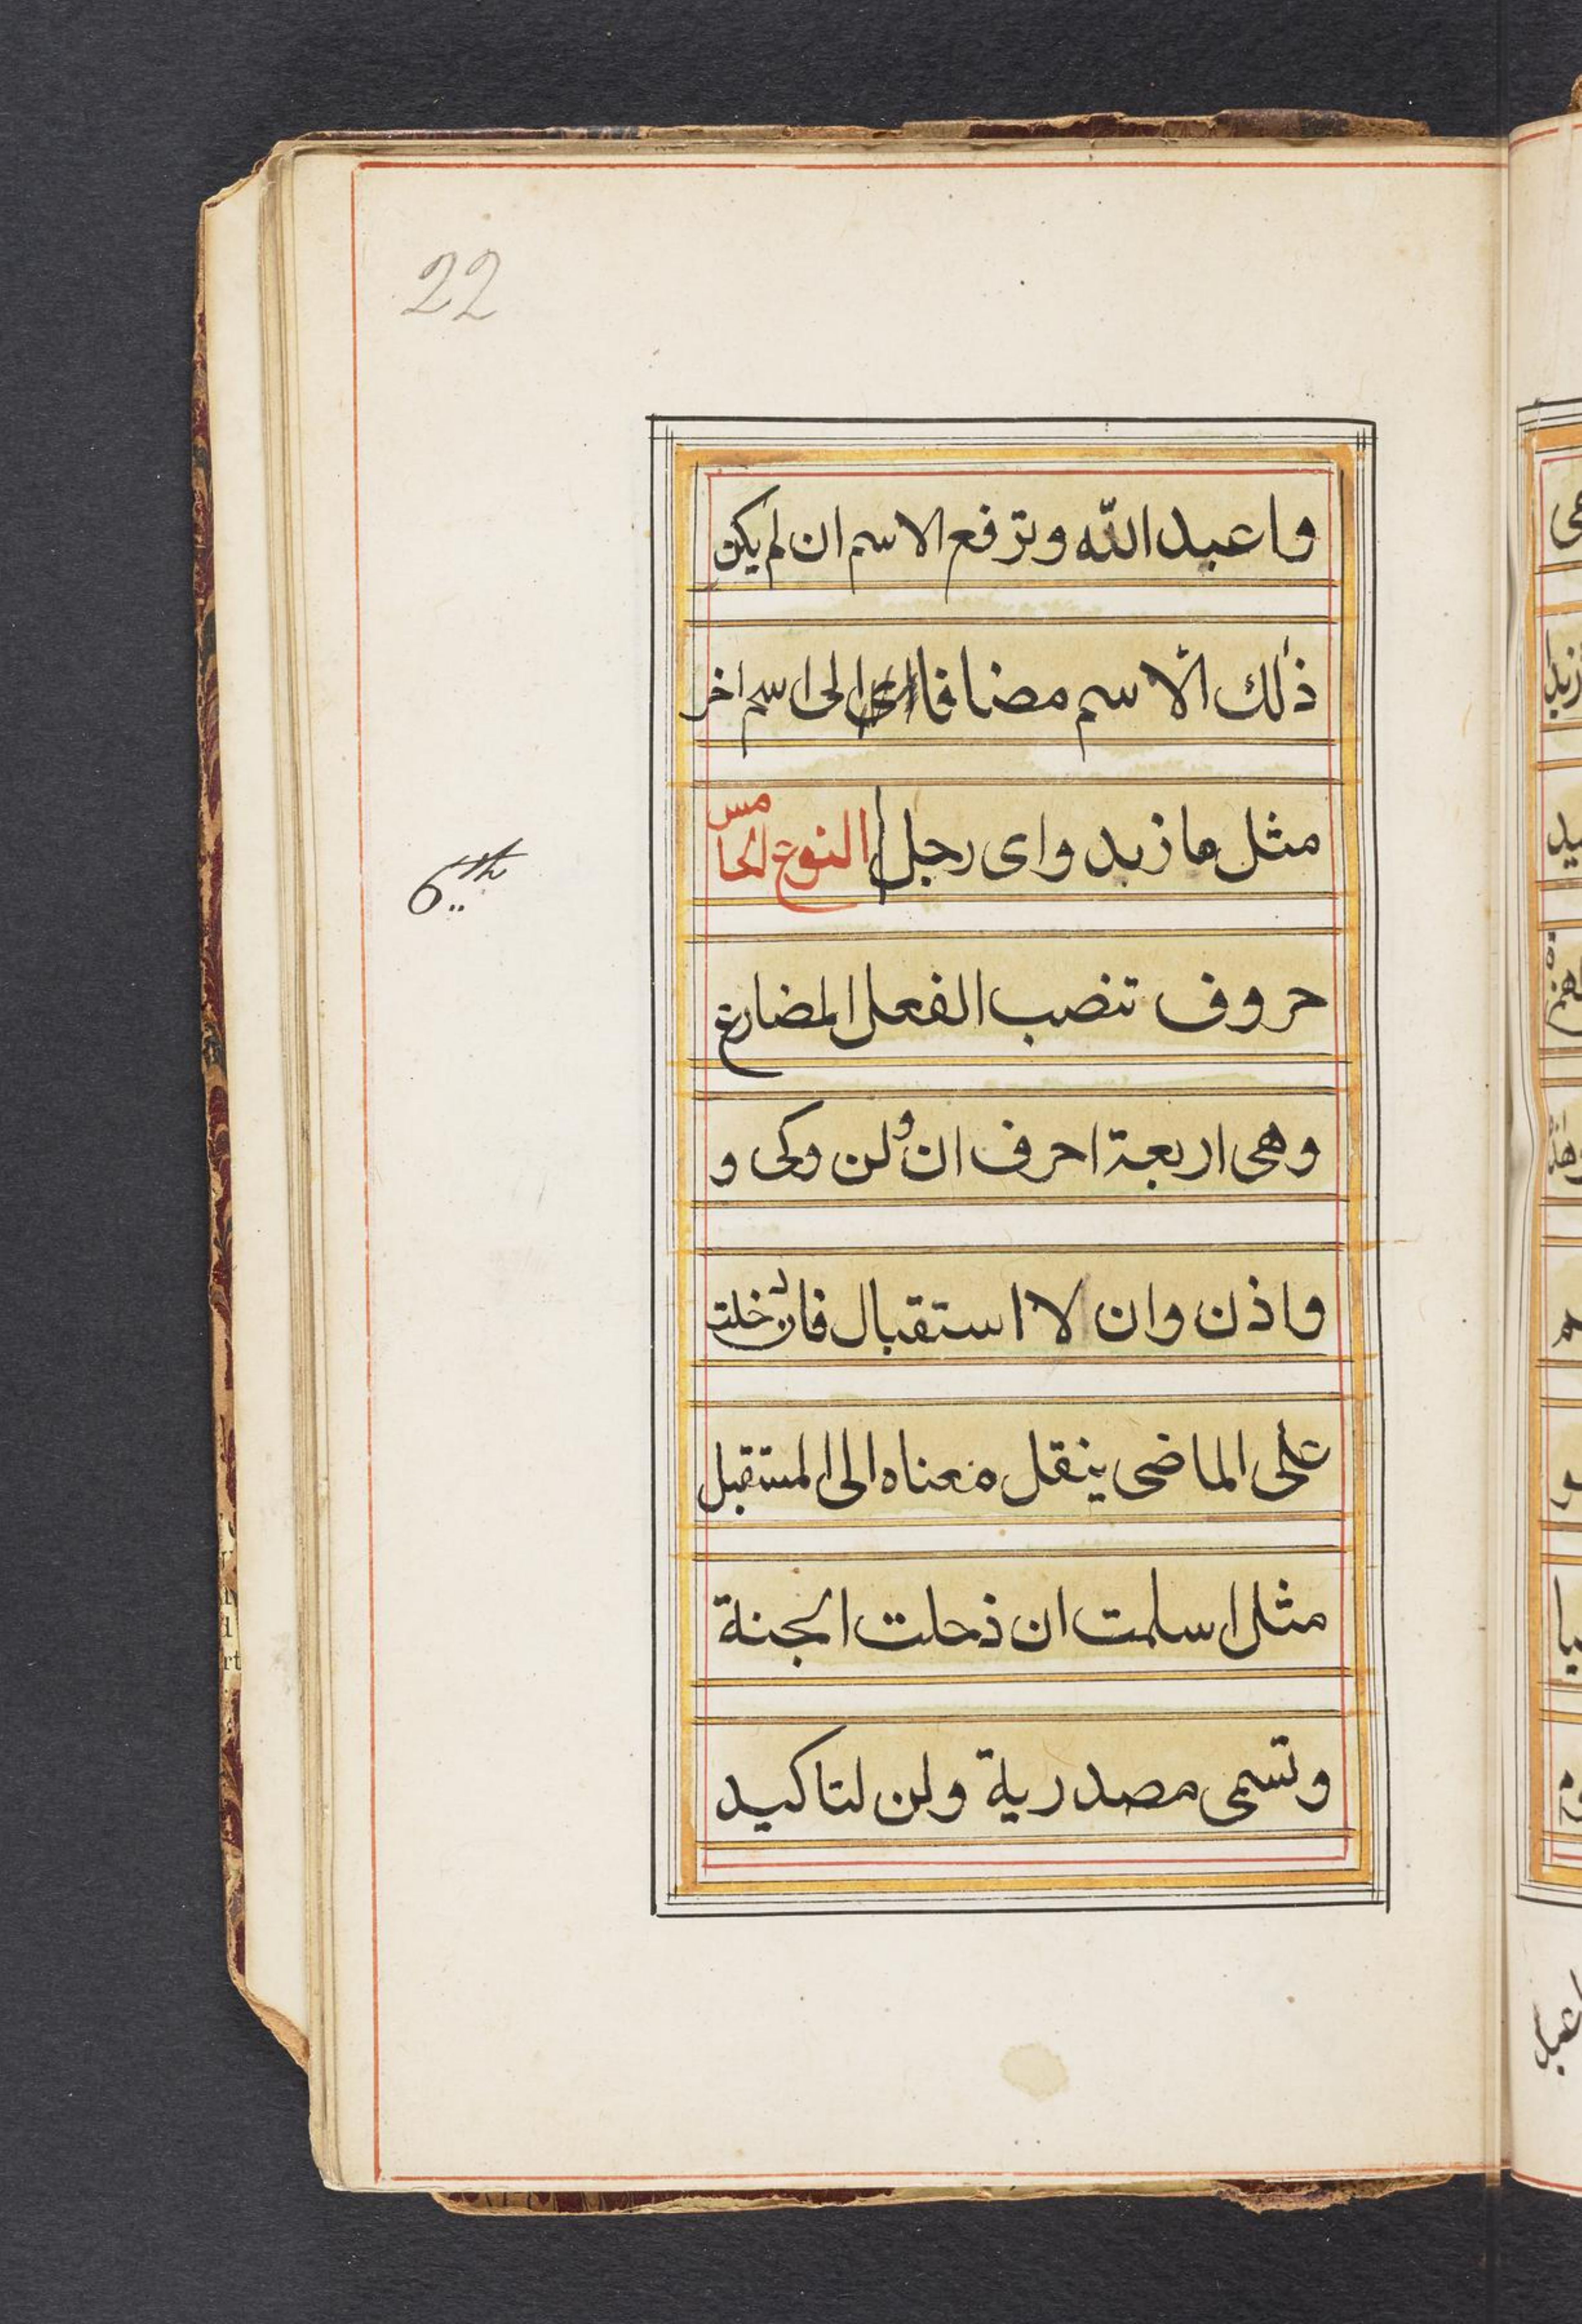 22
واعبد الله وترفع الاسم ان لم يكن
ذلك الاسم مضافا الى اسم اخر
مثل ما زيد واى رجل النوع الخامس
6th
حروف تنصب الفعل المضارع
وهى اربعة احرف ان ولن وكى و
واذن وان لا استقبال فان دخلت
على الماضى ينقل معناه الى المستقبل
مثل اسلمت ان ذحلت الجنة
وتسمى مصدرية ولن لتاكيد